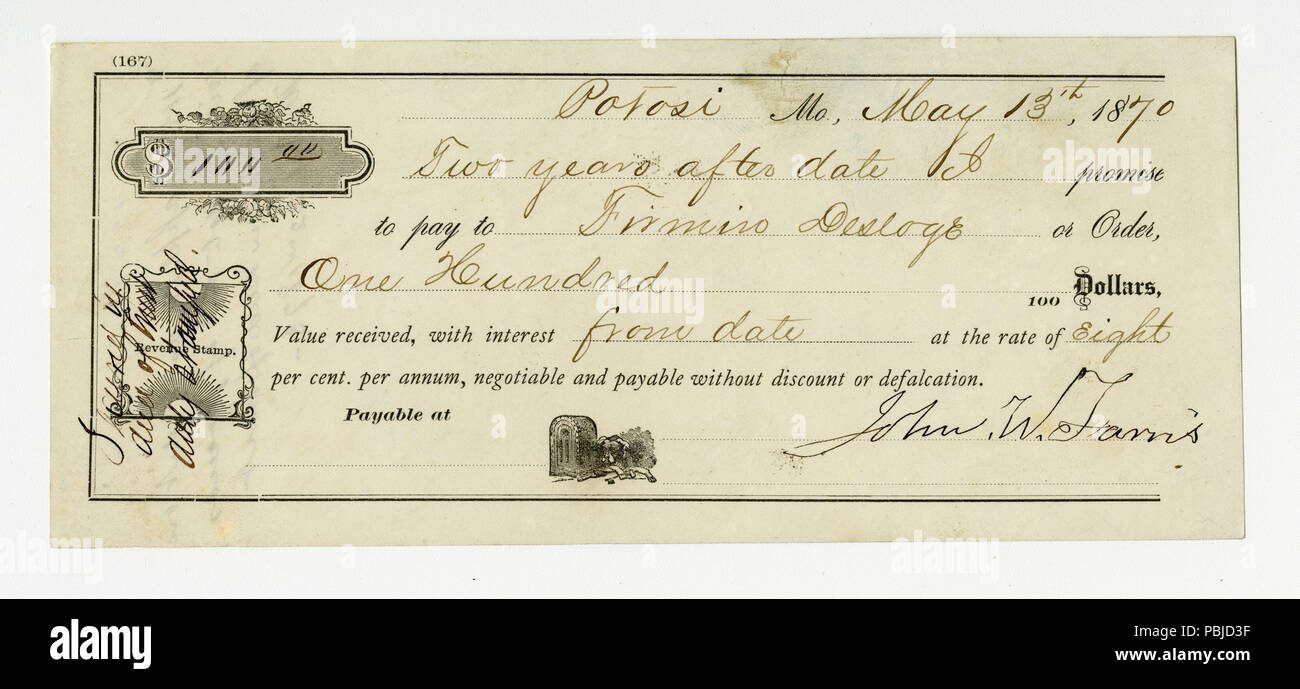 (167)
Potosi Mo, May 13th, 1870
$ 100 00
Two years after date I promise
to pay to Firmin Desloge or Order,
One Hundred 100 Dollars,
Value received, with interest from date at the rate of Eight
per cent. per annum, negotiable and payable without discount or defalcation.
Revenue Stamp.
Payable at
John W. Farris
alamy
Image ID: PBJD3F
www.alamy.com